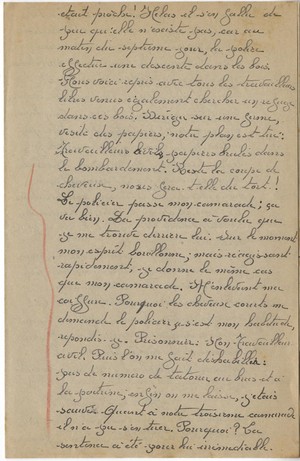 était proche! Hélas il s'en fallu de
peu qu'elle n'existe pas, car au
matin du septième jour, la police
effectue une descente dans les bois.
Nous voici repris avec tous les travailleurs
libres venus également chercher un refuge
dans ces bois. Dirigés sur une usine,
vérifié des papiers, notre plan est dit:
Travailleurs civils, papiers brulés dans
le bombardement. Reste la coupe de
cheveux, nous fera-t-elle du tort!
Le policier passe mon camarade; ça
va bien. La providence a voulu que
je me trouve derrière lui. Sur le moment
mon esprit bouillonne; mais réagissant
rapidement, je donne le même cas
que mon camarade. M'enlevant ma
coiffure. Pourquoi les cheveux courts me
demande le policier, c'est mon habitude,
répondis-je. Prisonnier: Non travailleur
civil. Puis l'on me fait déshabiller:
pas de numéro de tatoué au bras et à
la poitrine, enfin on me laisse, j'étais
sauvé. Quant à notre troisième camarade
il n'a pu s'en tirer. Pourquoi? La
sentence a été pour lui immédiate.